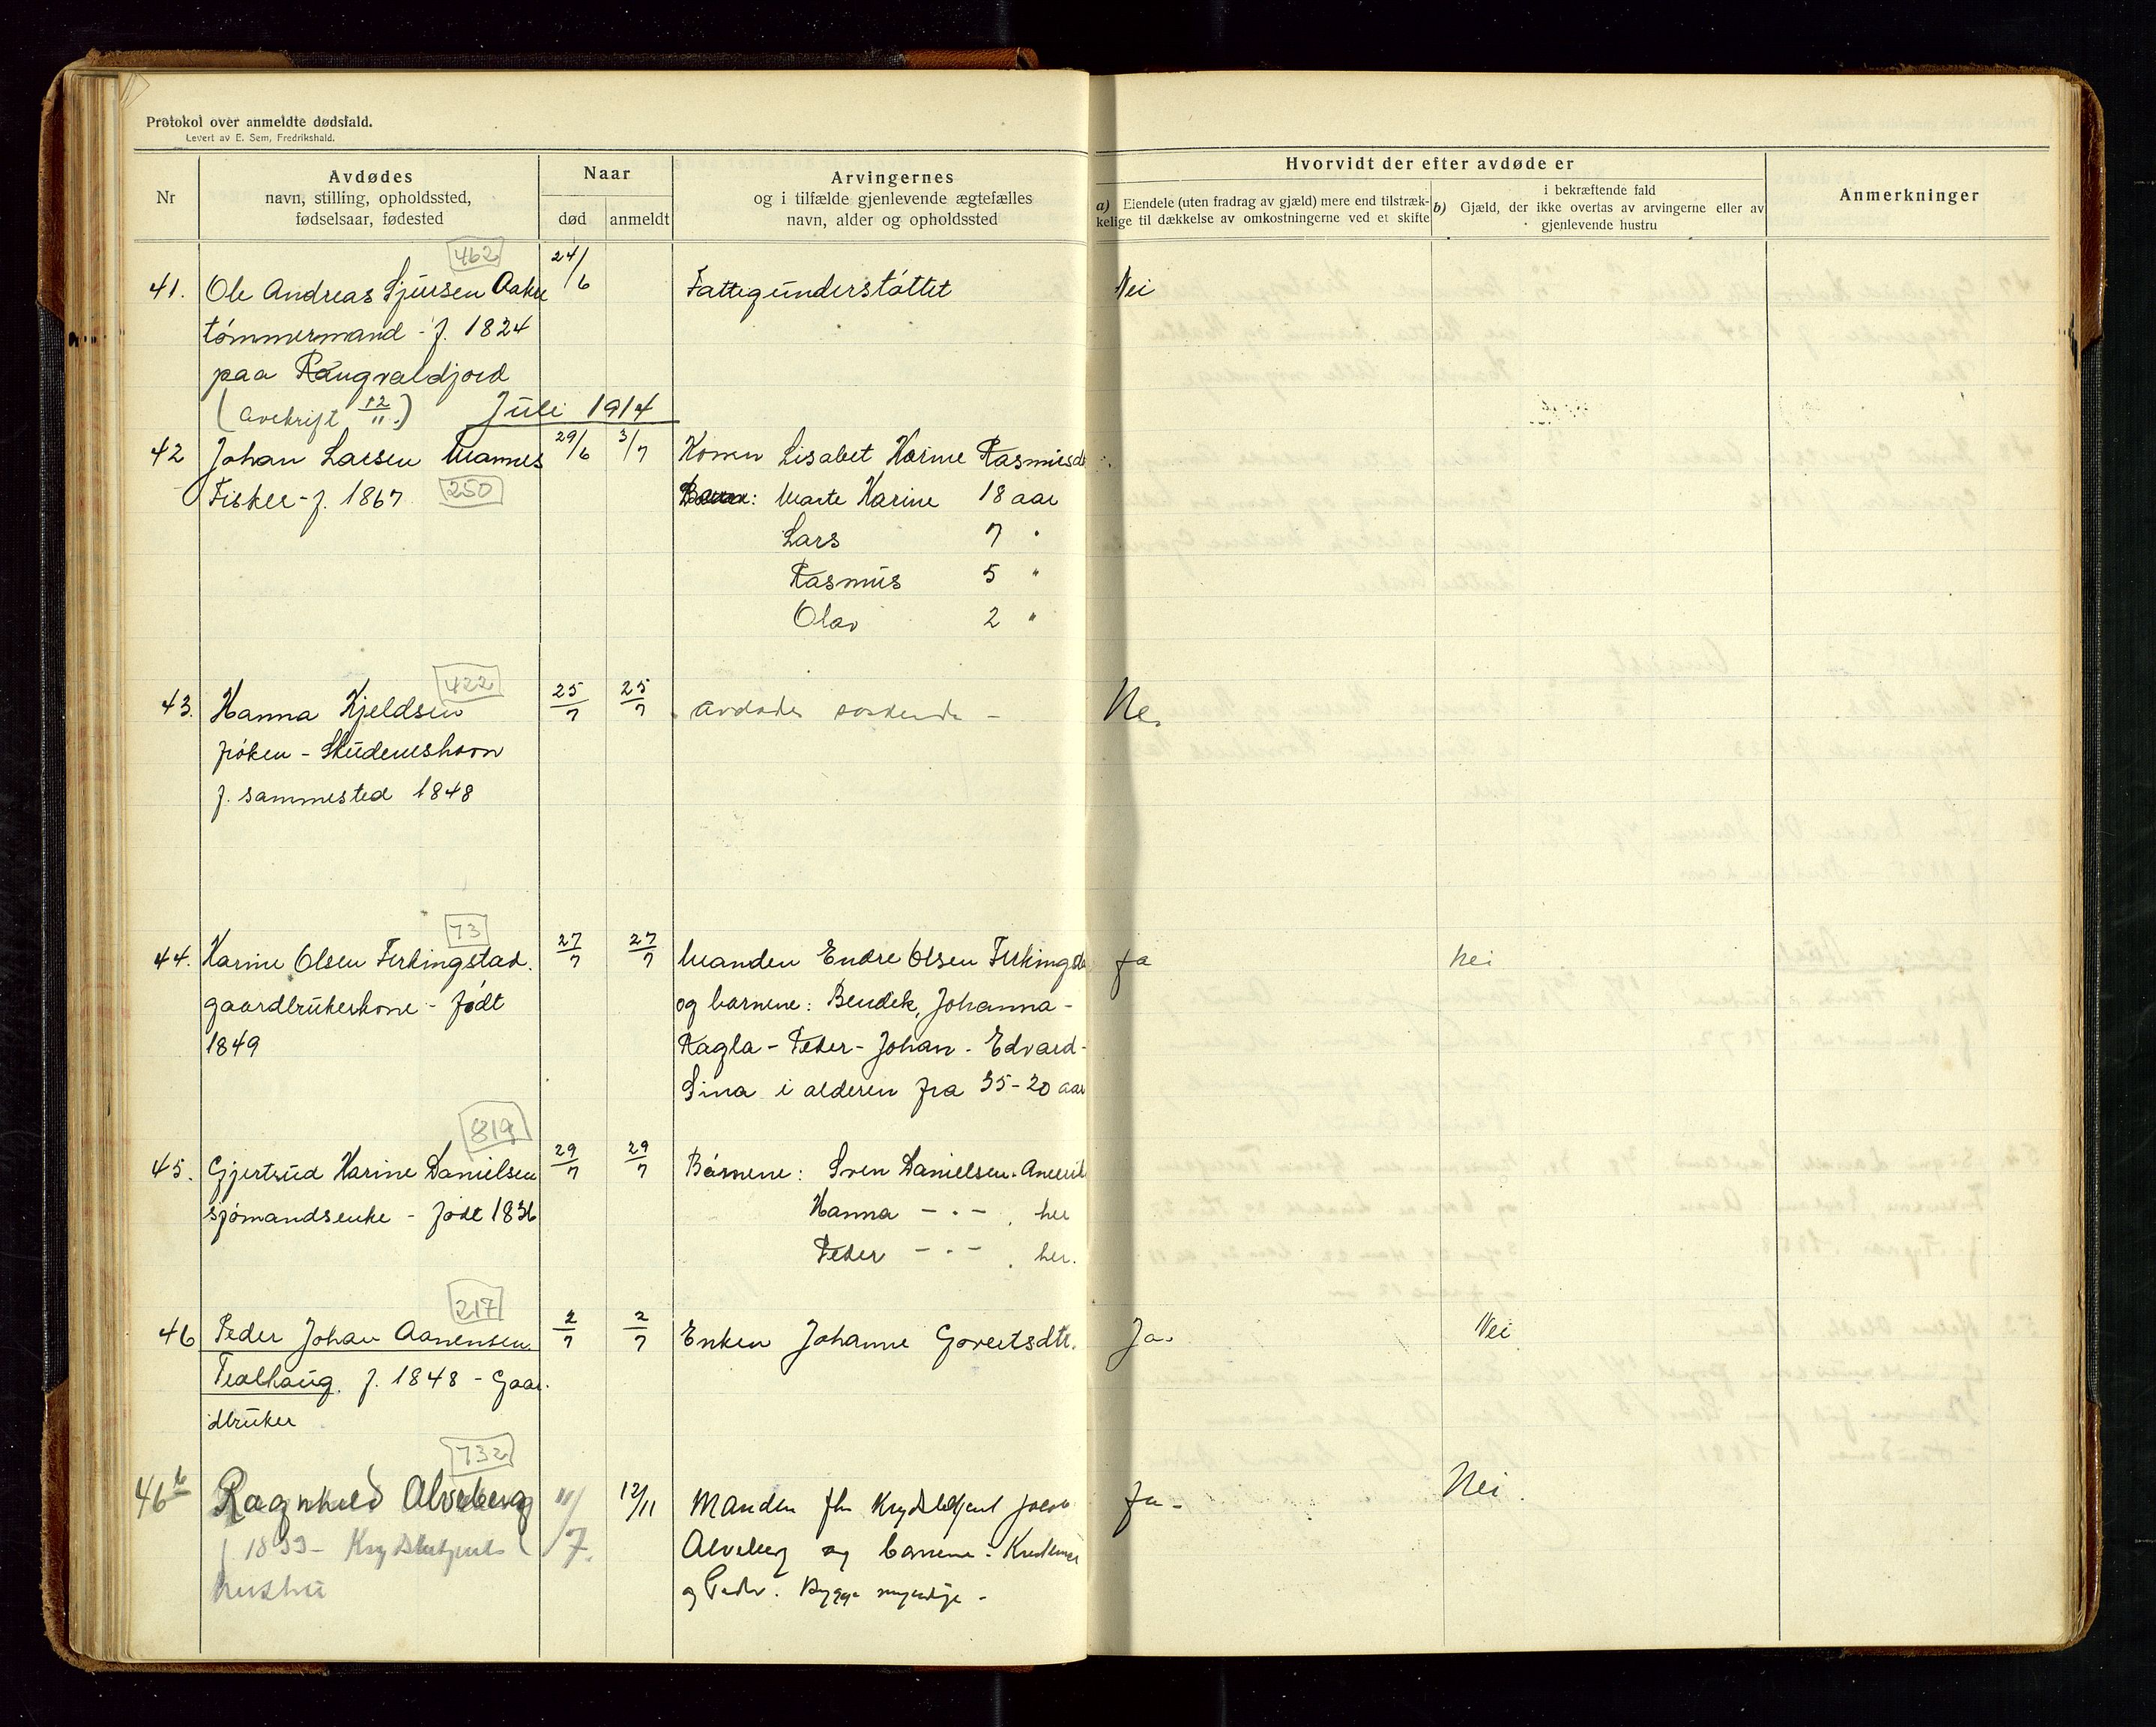 Protokol over anmeldte dødsfald.
Levert av E. Sem, Fredrikshald.
Nr
Avdødes
navn, stilling, opholdssted,
fødselsaar, fødested
Naar
død anmeldt
Arvingernes
og i tilfælde gjenlevende ægtefælles
navn, alder og opholdssted
Hvorvidt der efter avdøde er
a) Eiendele (uten fradrag av gjæld) mere end tilstræk-
kelige til dækkelse av omkostningerne ved et skifte
i bekræftende fald
b) Gjæld, der ikke overtas av arvingerne eller av
gjenlevende hustru
Anmerkninger
462
41. Ole Andreas Sjursen Aakre 24/6 Fattigunderstøttet Nei
tømmermand - f. 1824
paa Raugvaldjord
(Avskrift 12/11.) Juli 1914
42 Johan Larsen Mannes 29/6 3/7 Konen Lisabet Karine Rasmusd
Fisker - f. 1867 250 Marte Karine 18 aar
Lars 7 "
Rasmus 5 "
Olav 2 "
422
43. Hanna Kjeldsen 25/7 25/7 avdødes søskende - Nei
frøken - Skudeneshavn
f. sammested 1848
73
44. Karine Olsen Ferkingstad. 27/7 27/7 Manden Endre Olsen Ferkingsta Ja Nei
gaardbrukerkone - født og barnene: Bendek, Johanna -
1849 Ragla - Peder - Johan - Edvard -
Sina i alderen fra 35-20 aar
819
45. Gjertrud Karine Danielsen 29/7 29/7 Børnene: Sven Danielsen
sjømandsenke - født 1836 Hanna - " - , her
Peder - " - , her.
217
46 Peder Johan Aanensen 2/7 2/7 Enken Johanne Govertsdtr. Ja. Nei
Tealhaug. f. 1848 - Gaar-
dbruker
732
46b Ragnhild Alveberg 11/7. 12/11 Manden fhv Krydsbetjent Jacob Ja - Nei.
f 1833 - Krydsbetjents Alveberg og barnene:
hustru og Peder. Begge myndige -